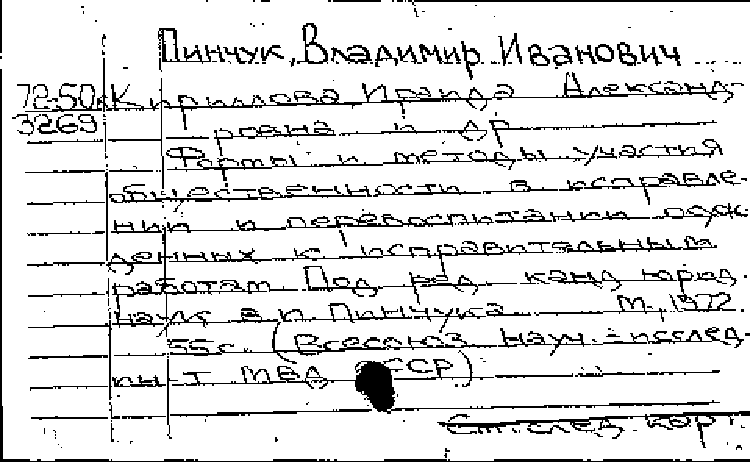 Пинчук, Владимир Иванович
72-50к Кириллова Ираида Александ-
3269 ровна и др
Формы и методы участия
общественности в исправле-
нии и перевоспитании осуж-
денных к исправительным
работам Под ред канд юрид.
наук В.И. Пинчука М., 1972.
55 с. (Всесоюз науч.-исслед-
ин-т МВД СССР)
См. след. кор.